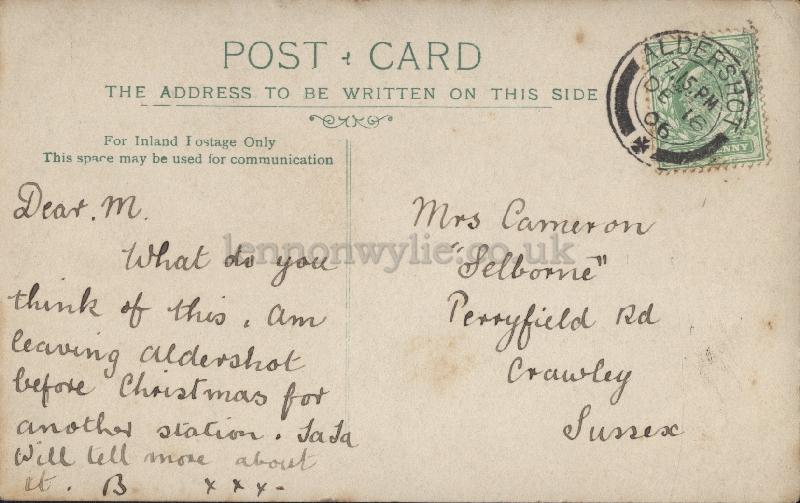 POST CARD
THE ADDRESS TO BE WRITTEN ON THIS SIDE
For Inland Postage Only
This space may be used for communication
ALDERSHOT
.15.PM
DE 16
06
NNY
Dear. M.
What do you
think of this. Am
leaving Aldershot
before Christmas for
another station. TaTa
Will tell more about
it. B x x x -
Mrs Cameron
"Selborne"
Perryfield Rd
Crawley
Sussex
lennonwylie.co.uk